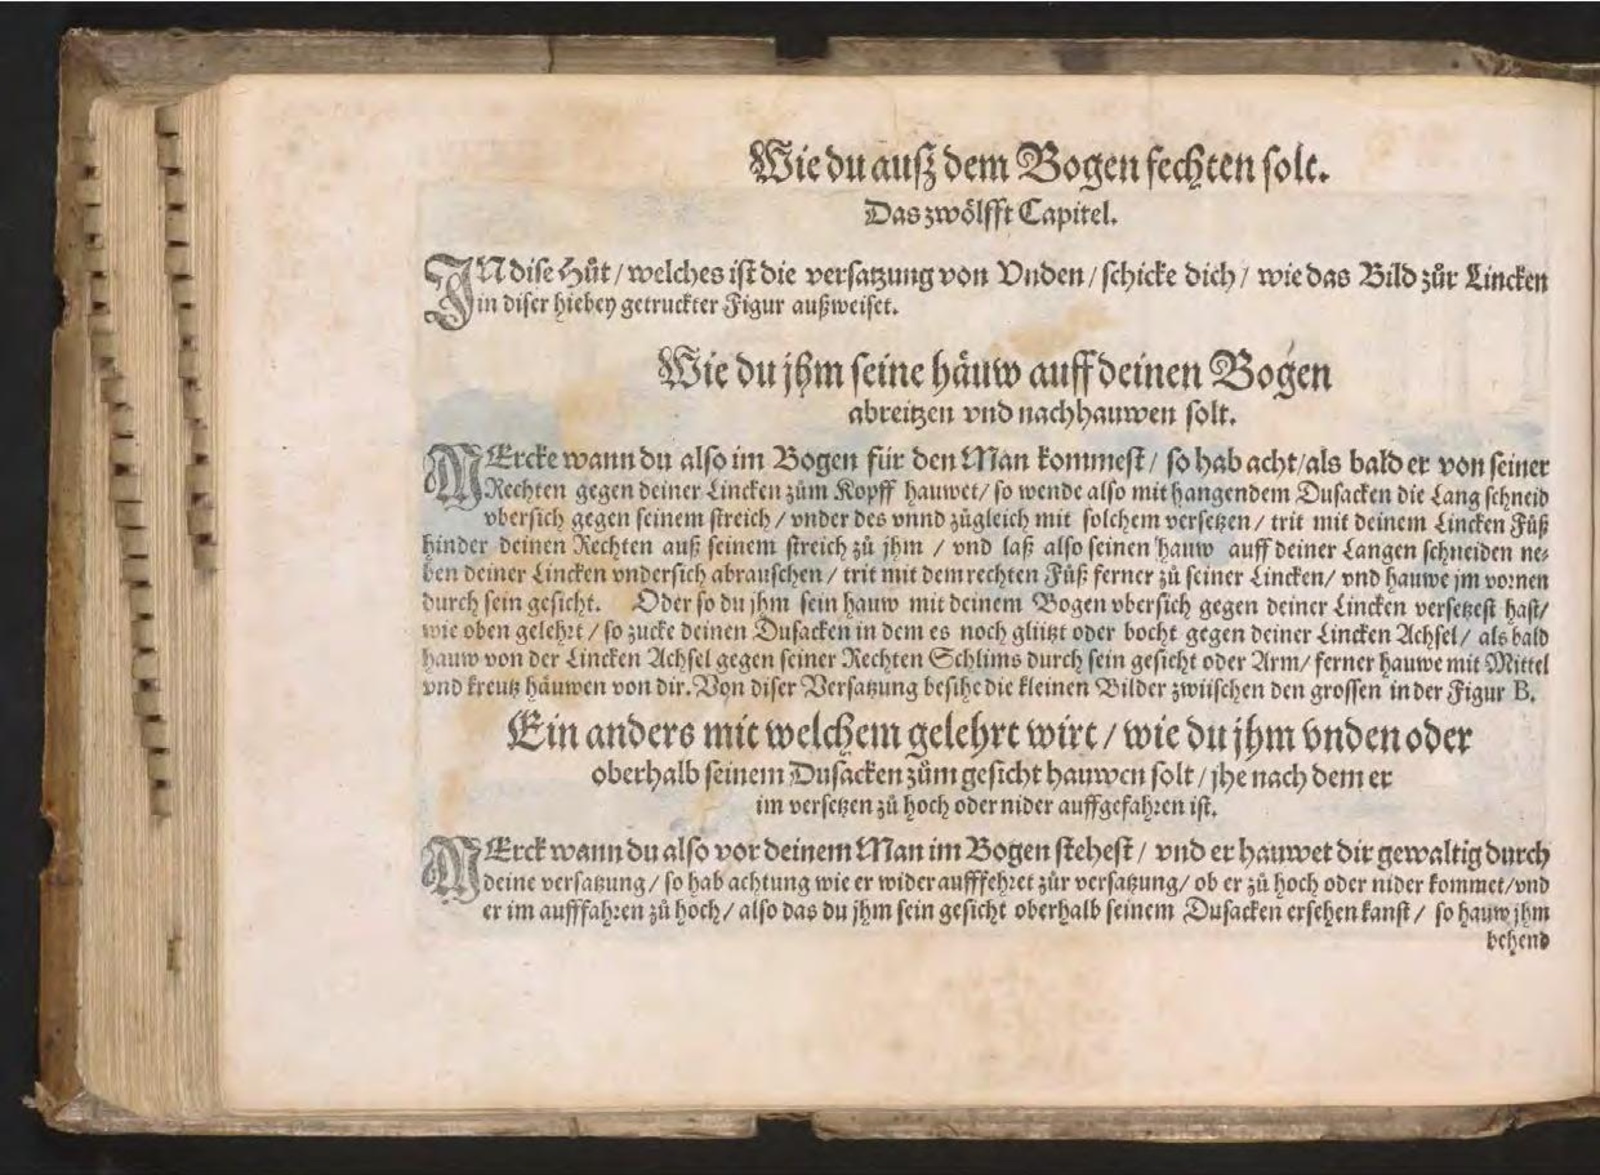 Wie du auß dem Bogen fechten solt.
Das zwölfft Capitel.
IN dise Hůt / welches ist die versatzung von Vnden / schicke dich / wie das Bild zůr Lincken
in diser hiebey getruckter Figur außweiset.
Wie du jhm seine häuw auff deinen Bogen
abreitzen vnd nachhauwen solt.
MErcke wann du also im Bogen für den Man kommest / so hab acht / als bald er von seiner
Rechten gegen deiner Lincken zům Kopff hauwet / so wende also mit hangendem Dusacken die Lang schneid
vbersich gegen seinem streich / vnder des vnnd zůgleich mit solchem versetzen / trit mit deinem Lincken Fůß
hinder deinen Rechten auß seinem streich zů jhm / vnd laß also seinen hauw auff deiner Langen schneiden ne-
ben deiner Lincken vndersich abrauschen / trit mit dem rechten Fůß ferner zů seiner Lincken / vnd hauwe jm vornen
durch sein gesicht. Oder so du jhm sein hauw mit deinem Bogen vbersich gegen deiner Lincken versetzest hast /
wie oben gelehrt / so zucke deinen Dusacken in dem es noch glützt oder bocht gegen deiner Lincken Achsel / als bald
hauw von der Lincken Achsel gegen seiner Rechten Schlims durch sein gesicht oder Arm / ferner hauwe mit Mittel
vnd kreutz häuwen von dir. Von diser Versatzung besihe die kleinen Bilder zwischen den grossen in der Figur B.
Ein anders mit welchem gelehrt wirt / wie du jhm vnden oder
oberhalb seinem Dusacken zům gesicht hauwen solt / jhe nach dem er
im versetzen zů hoch oder nider auffgefahren ist.
MErck wann du also vor deinem Man im Bogen stehest / vnd er hauwet dir gewaltig durch
deine versatzung / so hab achtung wie er wider aufffehret zůr versatzung / ob er zů hoch oder nider kommet / vnd
er im aufffahren zů hoch / also das du jhm sein gesicht oberhalb seinem Dusacken ersehen kanst / so hauw jhm
behend